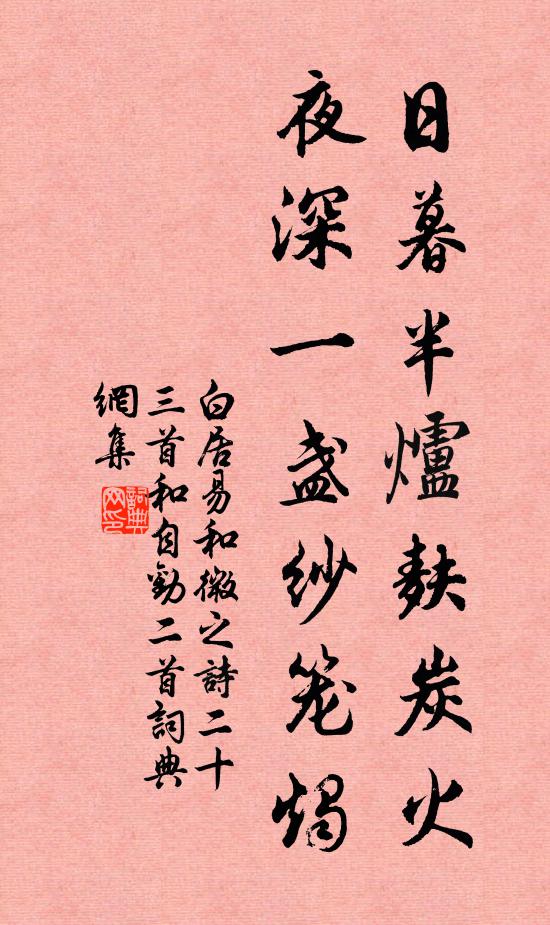 日暮半爐麩炭火
夜深一盏紗笼燭
白居易和微之詩二十
三首和自勸二首詞典
網集
詞典
网印